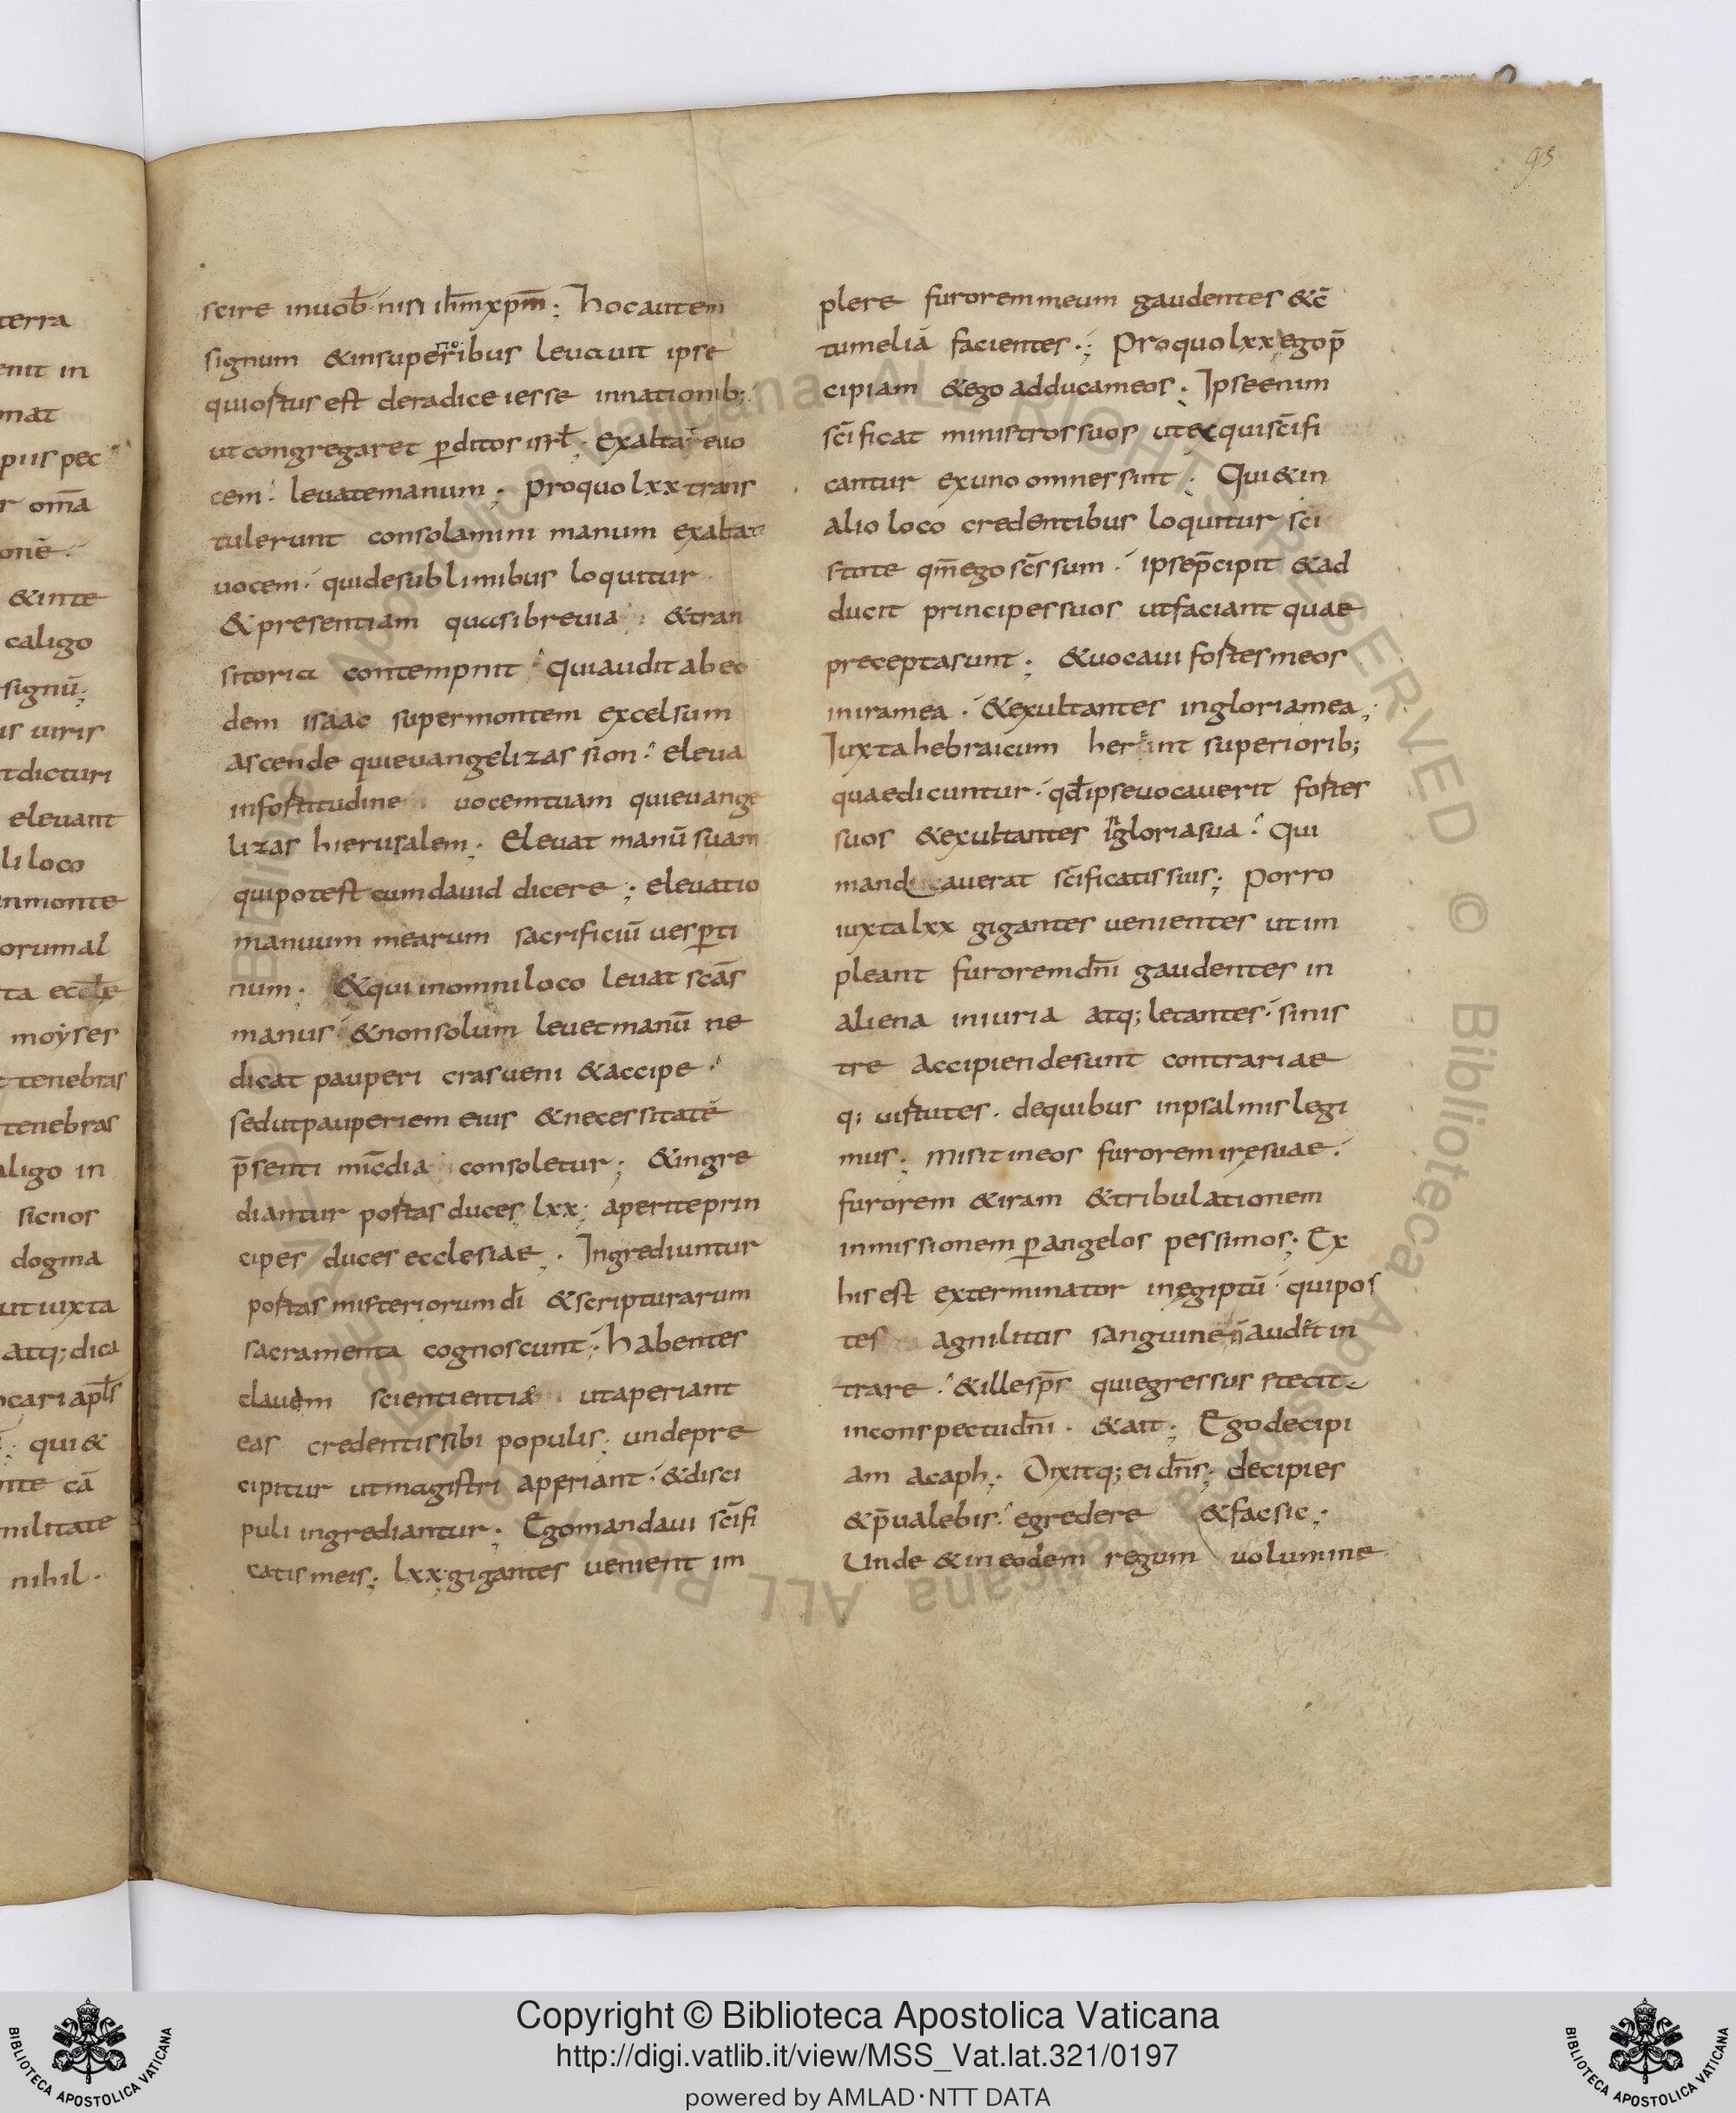 95
terra
enit in
mat
piis pec
r om̄a
onē
& inte
caligo
signū;
is uiris
t dicturi
eleuant
li loco
in monte
orum al
ta eccl̄e
moẏses
tenebras
tenebras
aligo in
sicnos
dogma
ut iuxta
atq; dica
ocari apl̄s
qui &
nte cā
militate
nihil.
scire in uob̄ nisi ih̄m xp̄m; hoc autem
signum & in superioribus leuauit ipse
qui ortus est de radice iesse in nationib;
ut congregaret p̄ditos isrl̄; exaltate uo
cem; leuate manum; pro quo lxx trans
tulerunt consolamini manum exaltate
uocem. qui de sublimibus loquitur
& presentiam quasi breuia & tran
sitoria contempnit qui audit ab eo
dem isaac super montem excelsum
ascende qui euangelizas sion. eleua
in fortitudine uocem tuam qui euange
lizas hierusalem; Eleuat manū suam
qui potest cum dauid dicere; eleuatio
manuum mearum sacrificiū uesp̄ti
num; & qui in omni loco leuat sc̄as
manus & non solum leuet manū ne
dicat pauperi cras ueni & accipe
sed ut pauperiem eius & necessitatē
p̄senti mic̄dia consoletur; & ingre
diantur portas duces lxx; aperite prin
cipes duces ecclesiae; Ingrediuntur
portas misteriorum dī & scripturarum
sacramenta cognoscunt; habentes
clauem scientientiæ ut aperiant
eas credentis sibi populis; unde pre
cipitur ut magistri aperiant & disci
puli ingrediantur; Ego mandaui sc̄ifi
catis meis; lxx gigantes uenient im
plere furorem meum gaudentes & c̄
tumeliā facientes; Pro quo lxx ego p̄
cipiam & ego adducam eos; Ipse enim
sc̄ificat ministros suos ut ex qui sc̄ifi
cantur ex uno omnes sint; Qui & in
alio loco credentibus loquitur sci
stote qm̄ ego sc̄s sum. ipse p̄cipit & ad
ducit principes suos ut faciant quae
precepta sunt; & uocaui fortes meos
in ira mea. & exultantes in gloria mea;
Iuxta hebraicum herent superiorib;
quae dicuntur. qd̄ ipse uocauerit fortes
suos & exultantes in gloria sua. qui
mandauerat sc̄ificatis suis; porro
iuxta lxx gigantes uenientes ut im
pleant furorem dn̄i gaudentes in
aliena iniuria atq; letantes. sinis
tre accipiende sunt contrariae
q; uirtutes. de quibus in psalmis legi
mus; misit in eos furorem irę suae.
furorem & iram & tribulationem
inmissionem p̄ angelos pessimos; Ex
his est exterminator in egiptū qui pos
tes agni litus sanguine n̄ audet in
trare. & ille sp̄s qui egressus stetit
in conspectu dn̄i. & ait; Ego decipi
am acaph; Dixitq; ei dn̄s; decipies
& p̄ualebis. egredere & fac sic;
Unde & in eodem regum uolumine
Copyright © Biblioteca Apostolica Vaticana
http://digi.vatlib.it/view/MSS_Vat.lat.321/0197
powered by AMLAD·NTT DATA
BIBLIOTECA APOSTOLICA VATICANA
BIBLIOTECA APOSTOLICA VATICANA